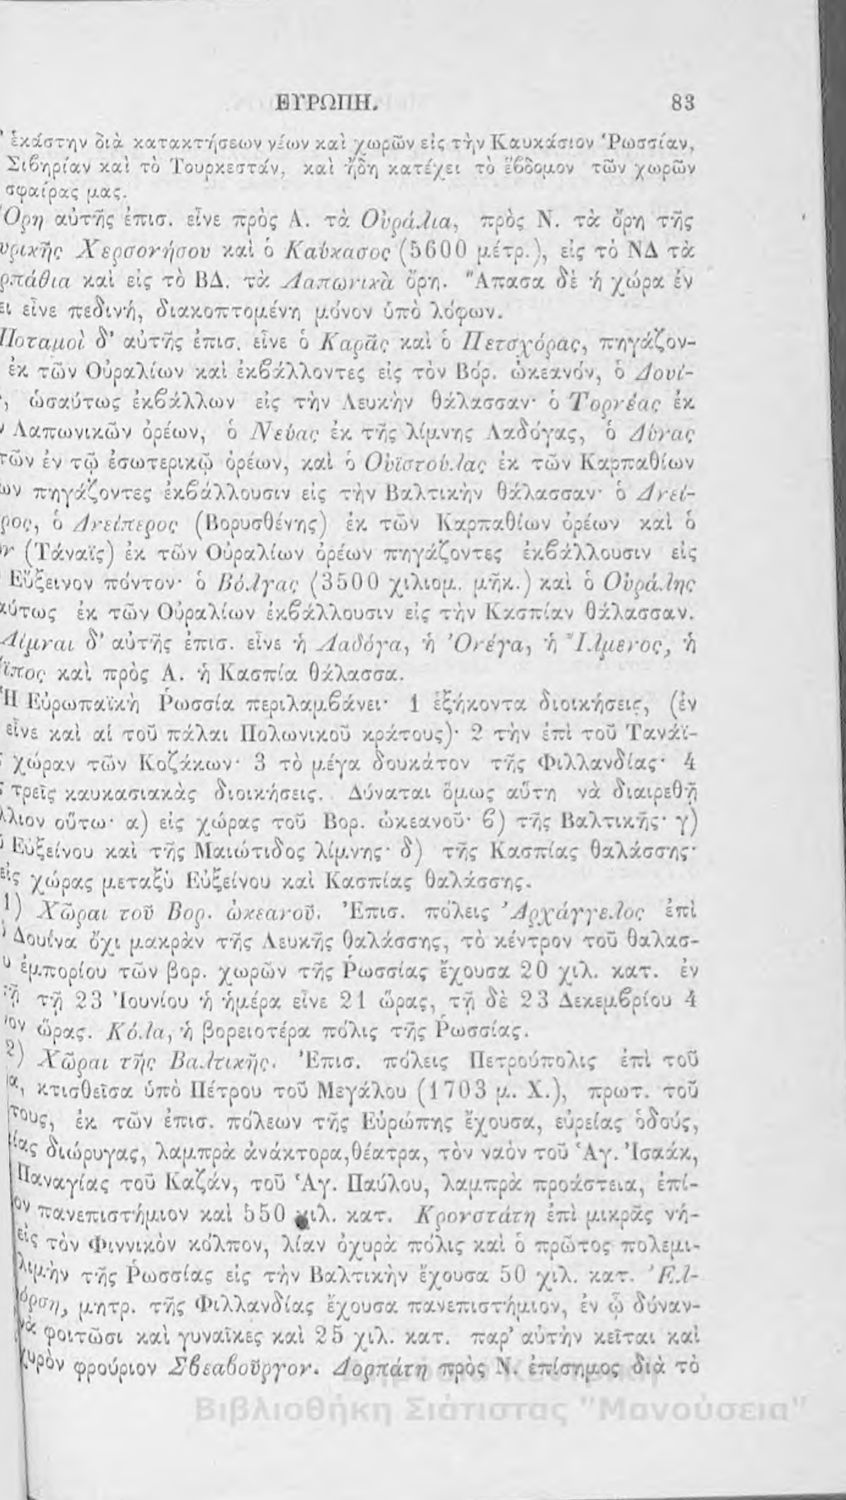 ΕΥΡΩΠΗ. 83
ἑκάστην διὰ κατακτήσεων νέων καὶ χωρῶν εἰς τὴν Καυκάσιον Ῥωσσίαν,
Σιβηρίαν καὶ τὸ Τουρκεστάν, καὶ ἤδη κατέχει τὸ ἕβδομον τῶν χωρῶν
σφαίρας μας.
Ὄρη αὐτῆς ἐπισ. εἶνε πρὸς Α. τὰ Οὐράλια, πρὸς Ν. τὰ ὄρη τῆς
υρικῆς Χερσονήσου καὶ ὁ Καύκασος (5600 μέτρ.), εἰς τὸ ΝΔ τὰ
ρπάθια καὶ εἰς τὸ ΒΔ. τὰ Λαπωνικὰ ὄρη. Ἅπασα δὲ ἡ χώρα ἐν
ει εἶνε πεδινή, διακοπτομένη μόνον ὑπὸ λόφων.
Ποταμοὶ δ' αὐτῆς ἐπισ. εἶνε ὁ Καρᾶς καὶ ὁ Πετσχόρας, πηγάζον-
ἐκ τῶν Οὐραλίων καὶ ἐκβάλλοντες εἰς τὸν Βόρ. ὠκεανόν, ὁ Δουΐ-
, ὡσαύτως ἐκβάλλων εἰς τὴν Λευκὴν θάλασσαν· ὁ Τορνέας ἐκ
Λαπωνικῶν ὀρέων, ὁ Νεύας ἐκ τῆς λίμνης Λαδόγας, ὁ Δύνας
τῶν ἐν τῷ ἐσωτερικῷ ὀρέων, καὶ ὁ Οὐϊστούλας ἐκ τῶν Καρπαθίων
ων πηγάζοντες ἐκβάλλουσιν εἰς τὴν Βαλτικὴν θάλασσαν· ὁ Δνεί-
ρος, ὁ Δνείπερος (Βορυσθένης) ἐκ τῶν Καρπαθίων ὀρέων καὶ ὁ
ν (Τάναϊς) ἐκ τῶν Οὐραλίων ὀρέων πηγάζοντες ἐκβάλλουσιν εἰς
Εὔξεινον πόντον· ὁ Βόλγας (3500 χιλιομ. μῆκ.) καὶ ὁ Οὐράλης
αύτως ἐκ τῶν Οὐραλίων ἐκβάλλουσιν εἰς τὴν Κασπίαν θάλασσαν.
Λίμναι δ' αὐτῆς ἐπισ. εἶνε ἡ Λαδόγα, ἡ Ὀνέγα, ἡ Ἴλμενος, ἡ
ϊπος καὶ πρὸς Α. ἡ Κασπία θάλασσα.
Ἡ Εὐρωπαϊκὴ Ῥωσσία περιλαμβάνει· 1 ἑξήκοντα διοικήσεις, (ἐν
εἶνε καὶ αἱ τοῦ πάλαι Πολωνικοῦ κράτους)· 2 τὴν ἐπὶ τοῦ Τανάϊ-
χώραν τῶν Κοζάκων· 3 τὸ μέγα δουκάτον τῆς Φιλλανδίας· 4
τρεῖς καυκασιακὰς διοικήσεις. Δύναται ὅμως αὕτη νὰ διαιρεθῇ
λλιον οὕτω· α) εἰς χώρας τοῦ Βορ. ὠκεανοῦ· β) τῆς Βαλτικῆς· γ)
Εὐξείνου καὶ τῆς Μαιώτιδος λίμνης· δ) τῆς Κασπίας θαλάσσης·
εἰς χώρας μεταξὺ Εὐξείνου καὶ Κασπίας θαλάσσης.
1) Χῶραι τοῦ Βορ. ὠκεανοῦ. Ἐπισ. πόλεις Ἀρχάγγελος ἐπὶ
Δουΐνα ὄχι μακρὰν τῆς Λευκῆς θαλάσσης, τὸ κέντρον τοῦ θαλασ-
υ ἐμπορίου τῶν βορ. χωρῶν τῆς Ῥωσσίας ἔχουσα 20 χιλ. κατ. ἐν
ῇ τῇ 23 Ἰουνίου ἡ ἡμέρα εἶνε 21 ὥρας, τῇ δὲ 23 Δεκεμβρίου 4
ον ὥρας. Κόλα, ἡ βορειοτέρα πόλις τῆς Ῥωσσίας.
2) Χῶραι τῆς Βαλτικῆς. Ἐπισ. πόλεις Πετρούπολις ἐπὶ τοῦ
α, κτισθεῖσα ὑπὸ Πέτρου τοῦ Μεγάλου (1703 μ. Χ.), πρωτ. τοῦ
τους, ἐκ τῶν ἐπισ. πόλεων τῆς Εὐρώπης ἔχουσα, εὐρείας ὁδούς,
ίας διώρυγας, λαμπρὰ ἀνάκτορα,θέατρα, τὸν ναὸν τοῦ Ἁγ. Ἰσαάκ,
Παναγίας τοῦ Καζάν, τοῦ Ἁγ. Παύλου, λαμπρὰ προάστεια, ἐπί-
ον πανεπιστήμιον καὶ 550 χιλ. κατ. Κρονστάτη ἐπὶ μικρᾶς νή-
εἰς τὸν Φιννικὸν κόλπον, λίαν ὀχυρὰ πόλις καὶ ὁ πρῶτος πολεμι-
λιμὴν τῆς Ῥωσσίας εἰς τὴν Βαλτικὴν ἔχουσα 50 χιλ. κατ. Ἐλ-
όρση, μητρ. τῆς Φιλλανδίας ἔχουσα πανεπιστήμιον, ἐν ᾧ δύναν-
νὰ φοιτῶσι καὶ γυναῖκες καὶ 25 χιλ. κατ. παρ' αὐτὴν κεῖται καὶ
υρὸν φρούριον Σβεαβοῦργον. Δορπάτη πρὸς Ν. ἐπίσημος διὰ τὸ
Βιβλιοθήκη Σιάτιστας "Μανούσεια"